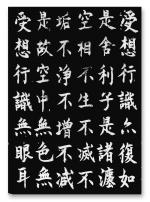 受想行識亦復如
是舍利子是諸灋
空相不生不滅不
垢不淨不增不減
是故空中無色無
受想行識無眼耳